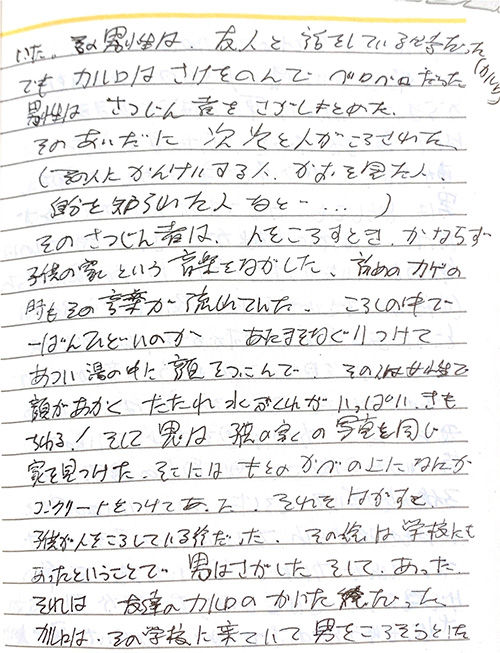 いた。その男性は、友人と話をしている時だった(カルロ)
でもカルロはさけをのんでベロベロだった
男性はさつじん者をさがしはじめた。
そのあいだに次々と人がころされた
(犯人にかんけいする人、かおを見た人、
自分を知られた人など…)
そのさつじん者は、人をころすとき、かならず
子供の家という音楽をながした、始めのカゲの
時もその音楽が流れてた。ころしの中で
一ばんひどいのが あたまをなぐりつけて
あつい湯の中に顔をつこんで、その人は女性で
顔があかくただれ水ぶくれがいっぱい、きも
わる! そして男は 子供の家の写真と同じ
家を見つけた。そこにはもとのかべの上になにか
コンクリートをつけてあった。それをはがすと
子供が人をころしている絵だった。その絵は学校にも
あったということで 男はさがした そして、あった
それは 友達のカルロのかいた絵だった
カルロは、その学校に来ていて男をころそうとした